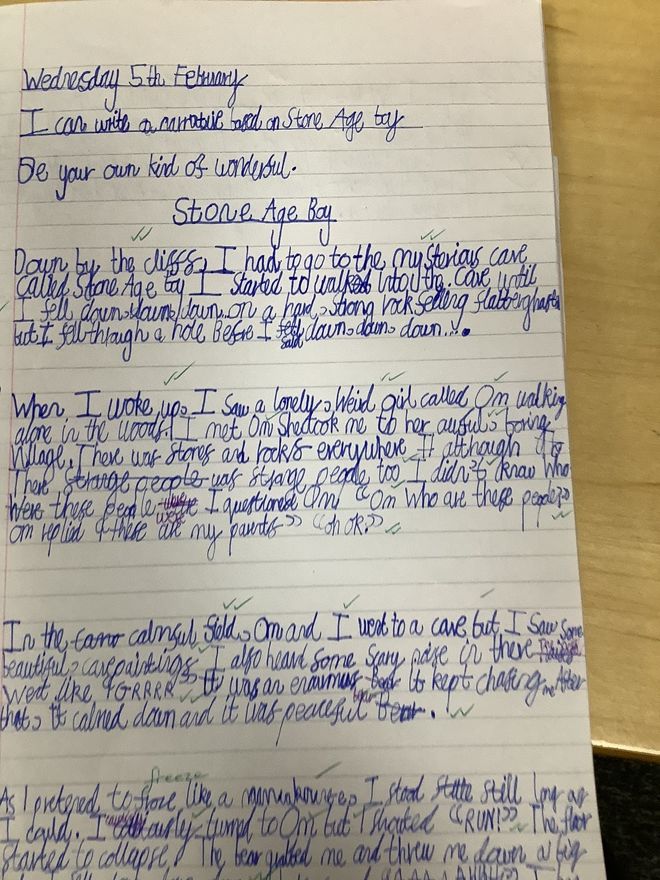 Wednesday 5th February
I can write a narrative based on Stone Age boy
Be your own kind of wonderful.
Stone Age Boy
Down by the cliffs, I had to go to the mysterious cave
called Stone Age boy I started to walked into the cave until
I fell down, down, down on a hard, strong rock
but I fell through a hole Before I fell down, down, down....
When I woke up, I saw a lonely, weird girl called Om walking
alone in the woods! I met Om she took me to her awful, boring
village. There was stones and rocks everywhere. although
There strange people was strange people too I didn't know who
were these people were I questioned Om! "Om who are these people?"
om replied "these are my parents" "oh ok."
In the calmful field, Om and I went to a cave but I saw some
beautiful, cave paintings I also heard some scary noise in there
went like "GRRRR" It was an enormus Bear It kept chasing me After
that, It calmed down and it was peaceful Bear.
freeze
As I pretened to froze like a I stood still long as
I could. I jump to Om but I shouted "RUN!" The floor
started to collapse. The bear me and threw me down a big